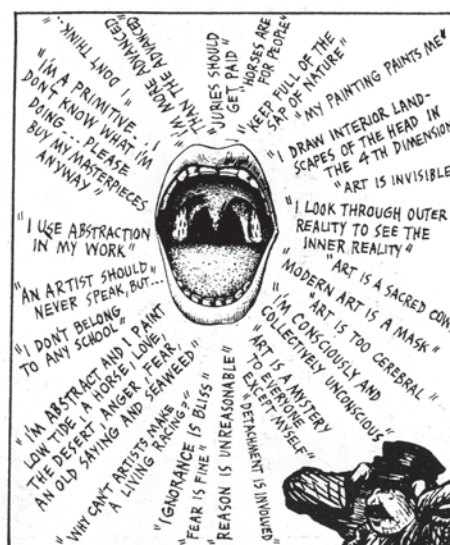 "I DON'T THINK...
"I'M MORE ADVANCED
THAN THE ADVANCED"
"JURIES SHOULD
GET PAID"
"HORSES ARE
FOR PEOPLE"
"KEEP FULL OF THE
SAP OF NATURE"
"MY PAINTING PAINTS ME"
"I DRAW INTERIOR LAND-
SCAPES OF THE HEAD IN
THE 4TH DIMENSION
"ART IS INVISIBLE
"I LOOK THROUGH OUTER
REALITY TO SEE THE
INNER REALITY"
"ART IS A SACRED COW
MODERN ART IS A MASK"
"ART IS TOO CEREBRAL"
"I'M CONSCIOUSLY AND
COLLECTIVELY UNCONSCIOUS"
"ART IS A MYSTERY
TO EVERYONE
EXCEPT MYSELF"
"DETACHMENT IS INVOLVED
"REASON IS UNREASONABLE"
"FEAR IS FINE"
"IGNORANCE IS BLISS"
"WHY CAN'T ARTISTS MAKE
A LIVING RACING?"
"I'M ABSTRACT AND I PAINT
LOW TIDE, A HORSE, LOVE,
THE DESERT, ANGER, FEAR,
AN OLD SAYING AND SEAWEED"
"I DON'T BELONG
TO ANY SCHOOL"
"AN ARTIST SHOULD
NEVER SPEAK, BUT...
"I USE ABSTRACTION
IN MY WORK"
"I'M A PRIMITIVE... I
DON'T KNOW WHAT I'M
DOING... PLEASE
BUY MY MASTERPIECES
ANYWAY"